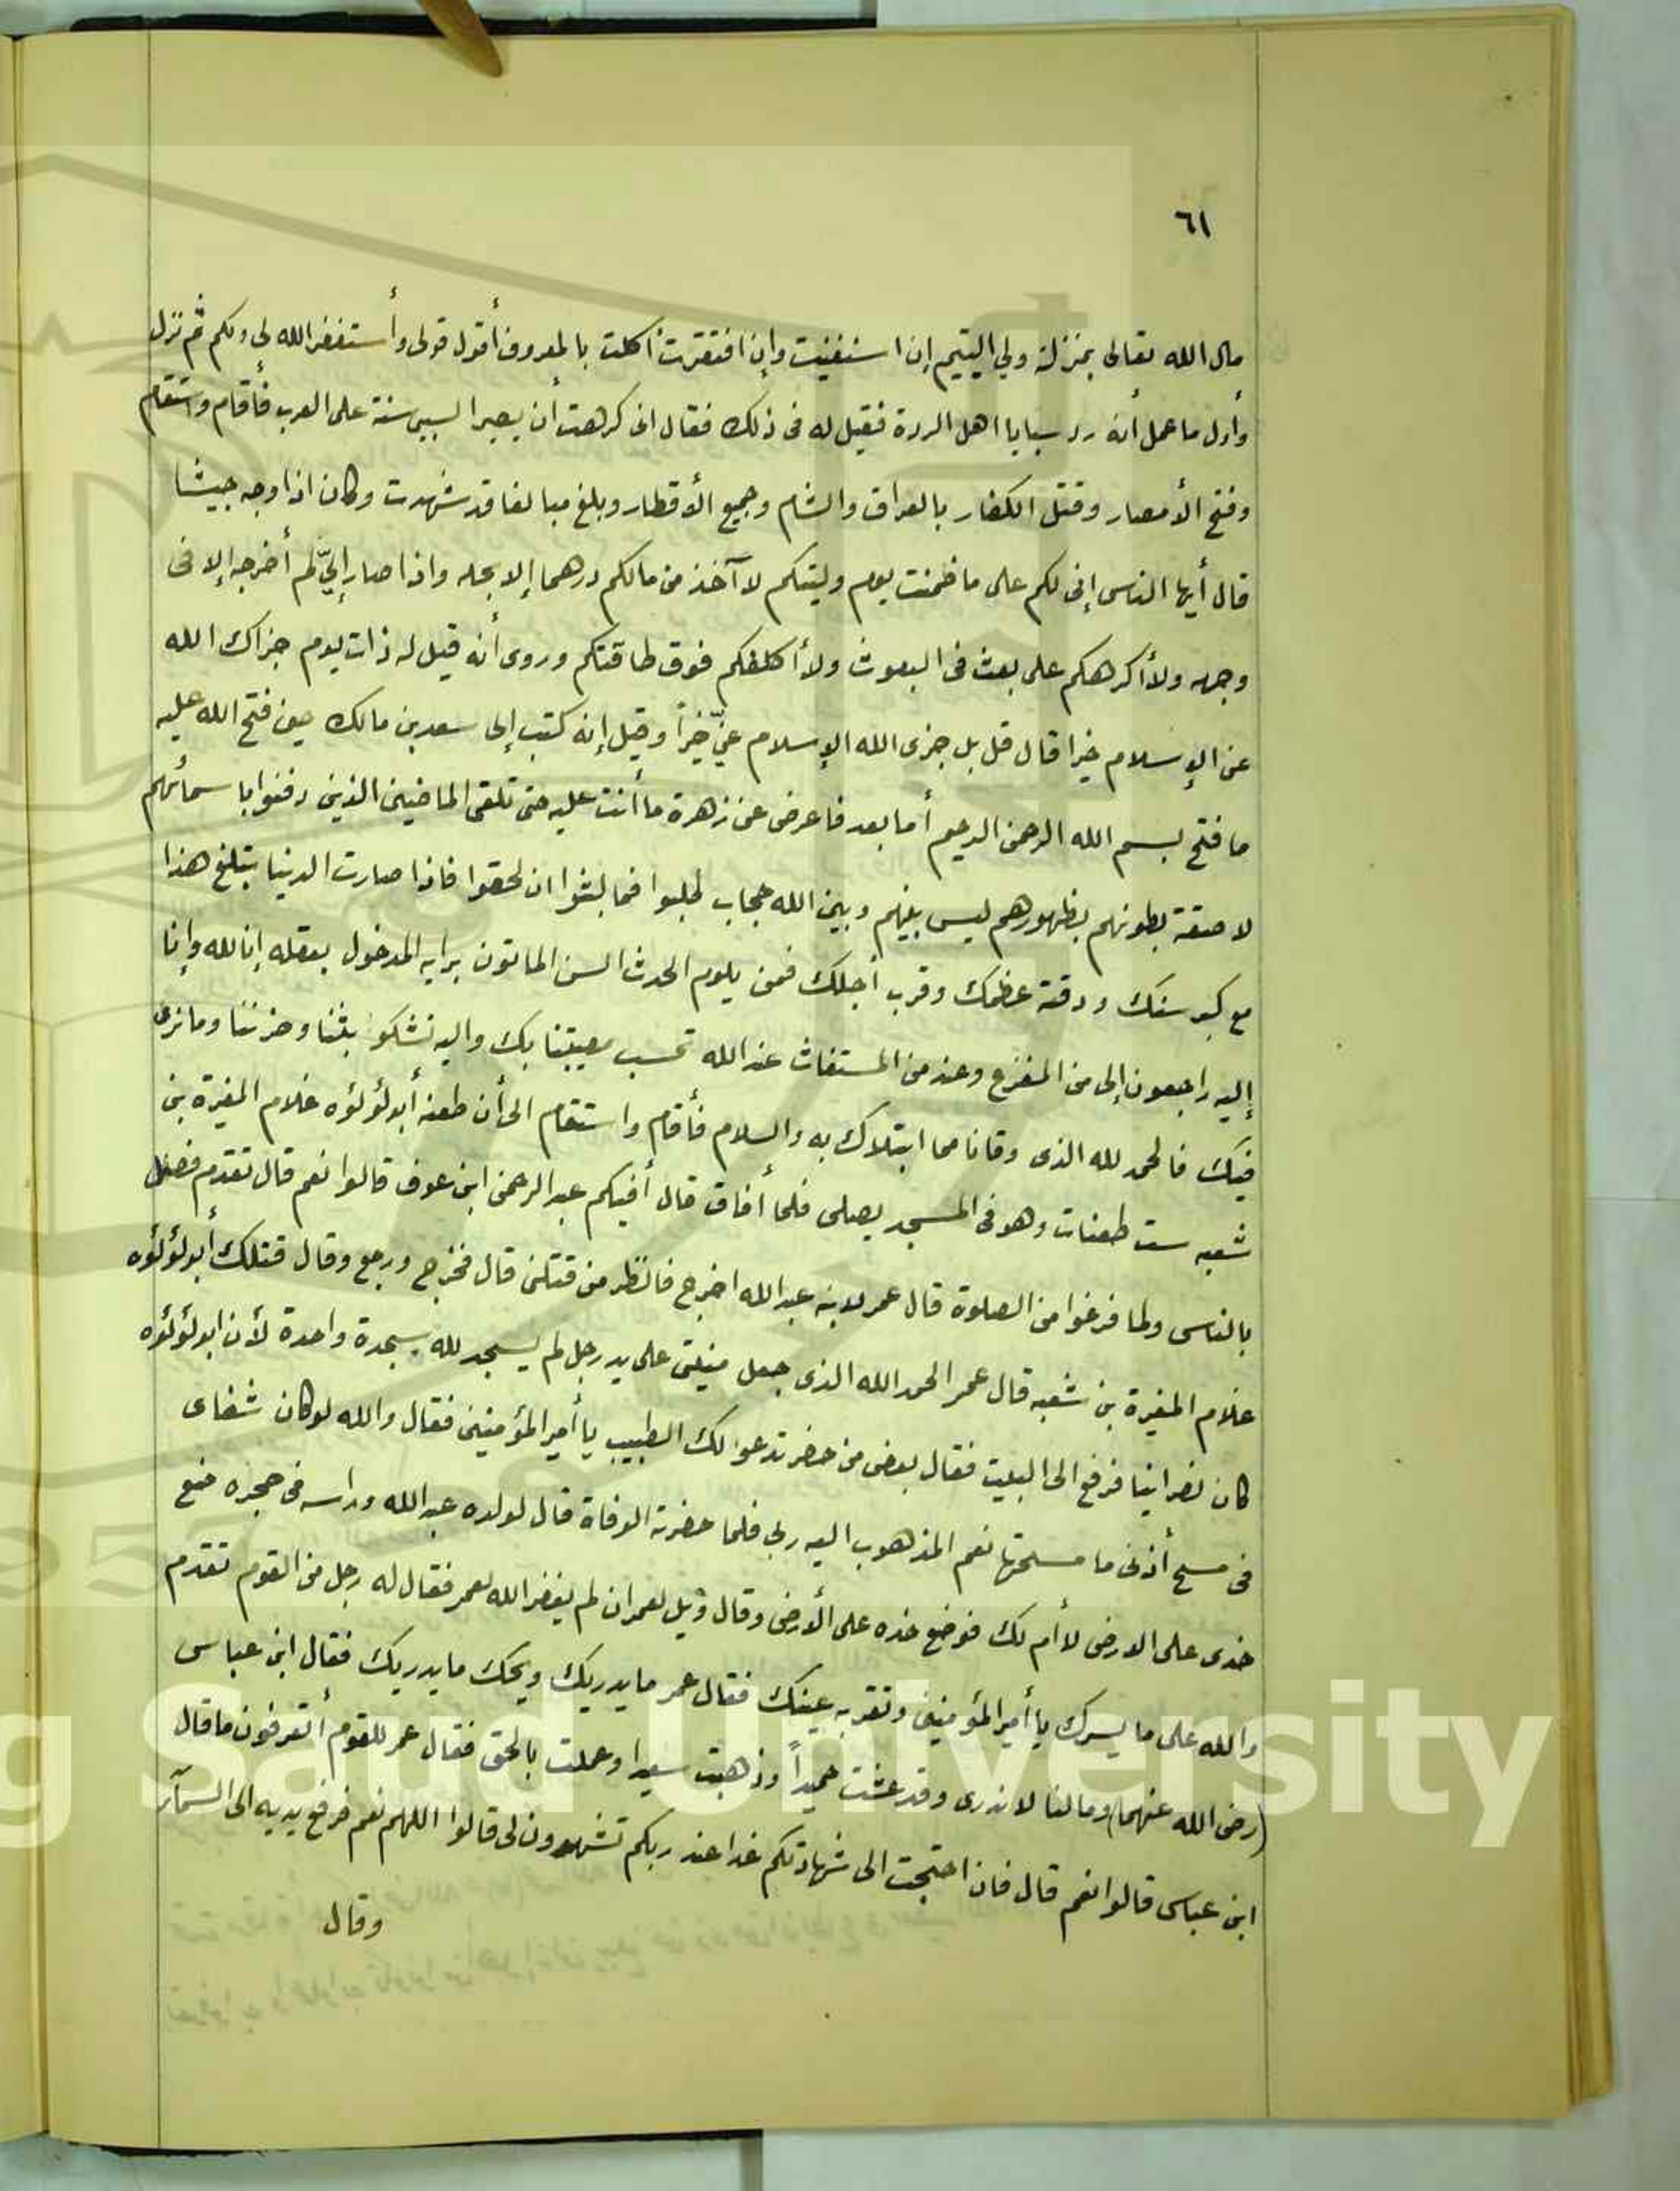 ٦١
مال الله تعالى بمنزلة ولي اليتيم إن استغنيت وإن افتقرت أكلت بالمعروف أقول قولى وأستغفر الله لى ولكم ثم نزل
وأول ما عمل أنه رد سبايا اهل الردة فقيل له فى ذلك فقال انى كرهت أن يصير السبى سنة على العرب فأقام واستقام
وفتح الأمصار وقتل الكفار بالعراق والشام وجميع الأقطار وبلغ مبالغا قد شهدت وكان اذا وجه جيشا
قال أيها الناس إنى لكم على ما ضمنت يوم وليتكم لا آخذ من مالكم درهما إلا بحله واذا صار إليّ لم أخرجه إلا فى
وجهه ولا أكرهكم على بعث فى البعوث ولا أكلفكم فوق طاقتكم وروى أنه قيل له ذات يوم جزاك الله
عن الإسلام خيرا قال قل بل جزى الله الإسلام عنّي خيراً وقيل إنه كتب إلى سعد بن مالك حين فتح الله عليه
ما فتح بسم الله الرحمن الرحيم أما بعد فاعرض عن زهرة ما أنت عليه حتى تلقى الماضين الذين دفنوا با سمائهم
لاصقة بطونهم بظهورهم ليس بينهم وبين الله حجاب لجلبوا فما لبثوا ان لحقوا فاذا صارت الدنيا بتلغ هذا
مع كبر سنك ودقة عظمك وقرب أجلك فمن يلوم الحدث السن المأتون برايه المدخول بعقله إنا لله وإنا
إليه راجعون إلى من المفزع وعند من المستغاث عند الله تحسب مصيبتنا بك واليه نشكو بثنا وحزننا وما نرى
فيك فالحمد لله الذى وقانا مما ابتلاك به والسلام فأقام واستقام الى أن طعنه أبو لؤلؤه غلام المغيرة بن
شعبه ست طعنات وهو فى المسجد يصلى فلما أفاق قال أفيكم عبد الرحمن ابن عوف قالوا نعم قال تقدم فصل
بالناس ولما فرغوا من الصلوة قال عمر لابنه عبد الله اخرج فانظر من قتلنى قال فخرج ورجع وقال قتلك أبو لؤلؤه
غلام المغيرة بن شعبه قال عمر الحمد الله الذى جعل منيتى على يد رجل لم يسجد لله سجدة واحدة لأن ابو لؤلؤه
كان نصرانيا فرفع الى البيت فقال بعض من حضر ندعوا لك الطبيب يا أمير المؤمنين فقال والله لو كان شفاى
فى مسح أذنى ما مسحتها نعم المذهوب اليه ربى فلما حضرته الوفاة قال لولده عبد الله وراسه فى حجره ضع
خدى على الارض لا أم لك فوضع خده على الأرض وقال ويل لعمر ان لم يغفر الله لعمر فقال له رجل من القوم تقدم
والله على ما يسرك يا أمير المؤمنين وتقر به عينك فقال عمر ما يدريك ويحك ما يدريك فقال ابن عباس
(رضى الله عنهما) ومالنا لا ندرى وقد عشت حميداً وذهبت سعيدا وعملت بالحق فقال عمر للقوم أتعرفون ما قال
ابن عباس قالوا نعم قال فان احتجت الى شهادتكم غدا عند ربكم تشهدون لى قالوا اللهم نعم فرفع يديه الى السمآء
وقال
King Saud University